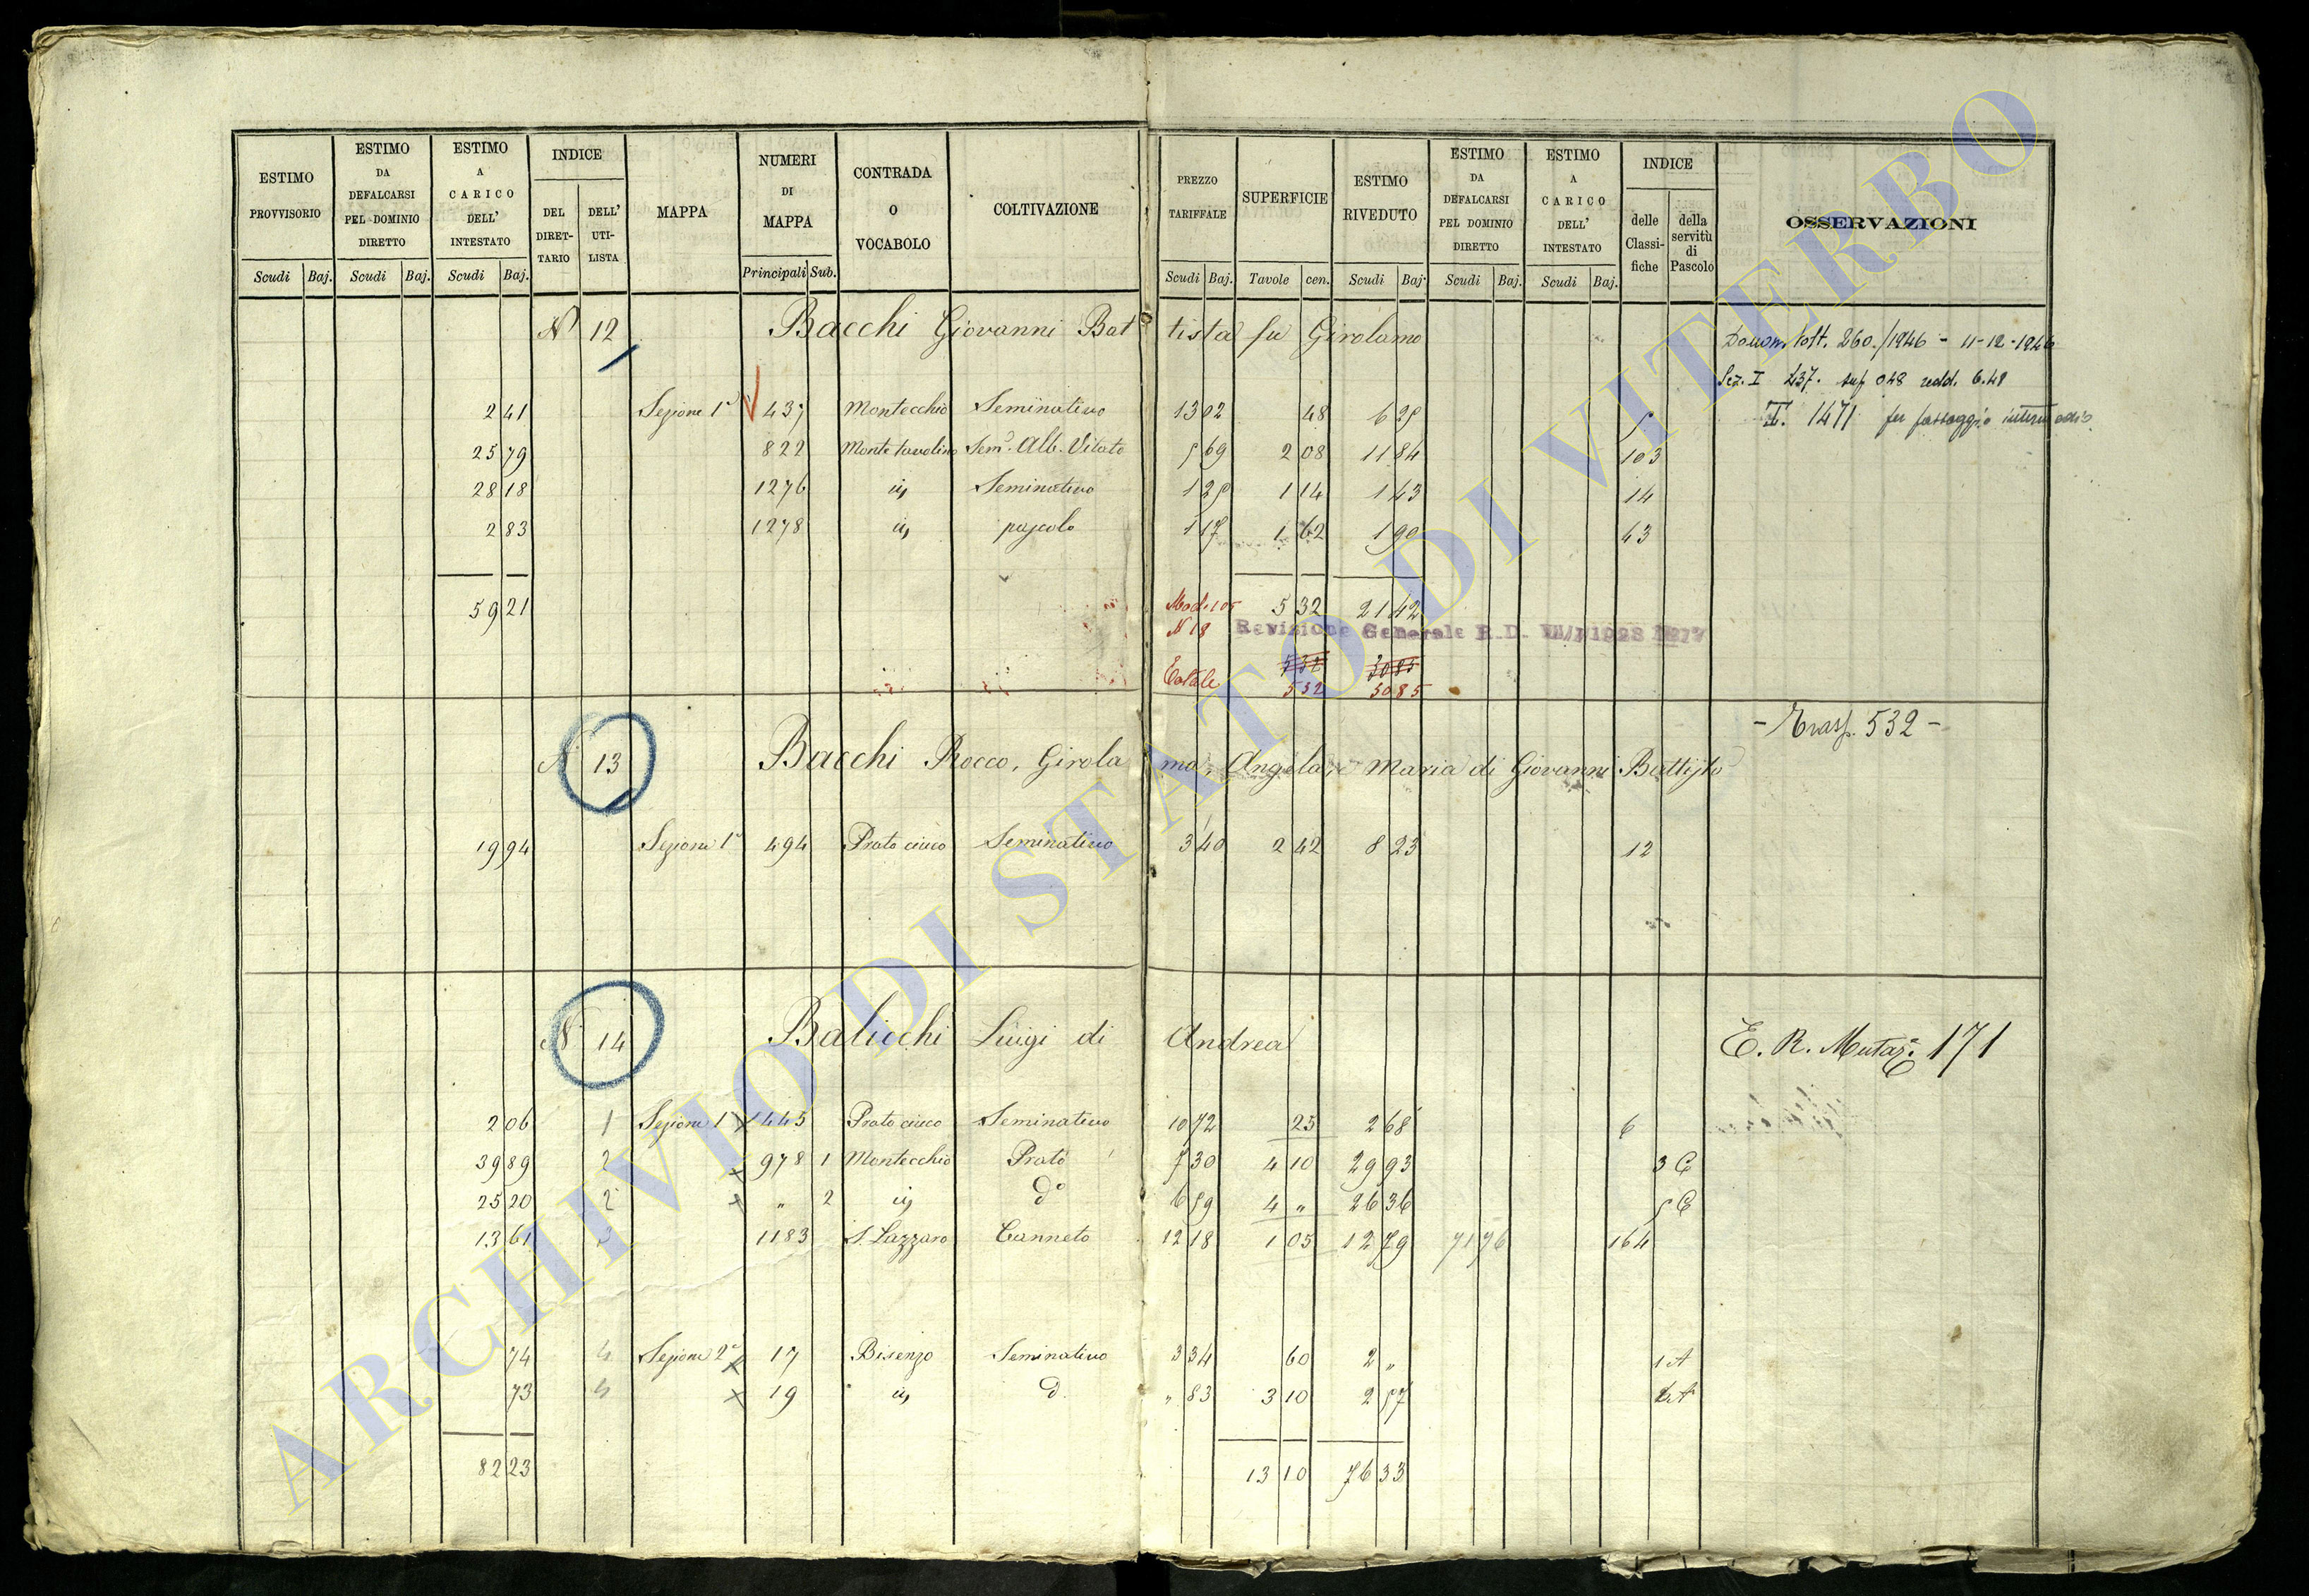 ESTIMO PROVVISORIO | ESTIMO DA DEFALCARSI PEL DOMINIO DIRETTO | ESTIMO A CARICO DELL' INTESTATO | INDICE | MAPPA | NUMERI DI MAPPA | CONTRADA O VOCABOLO | COLTIVAZIONE | PREZZO TARIFFALE | SUPERFICIE | ESTIMO RIVEDUTO | ESTIMO DA DEFALCARSI PEL DOMINIO DIRETTO | ESTIMO A CARICO DELL' INTESTATO | INDICE | OSSERVAZIONI
DEL DIRETTARIO | DELL' UTILISTA | delle Classifiche | della servitù di Pascolo
Scudi Baj. | Scudi Baj. | Scudi Baj. | Principali Sub. | Scudi Baj. | Tavole cen. | Scudi Baj. | Scudi Baj. | Scudi Baj.
N 12 Bacchi Giovanni Battista fu Girolamo
260/1946 - 11-12-1946
Sez. I 437. sup 0.48 redd. 6.48
1471
2 41 Sezione 1ª 437 Montecchio Seminativo 13 02 48 6 25 5
25 79 822 Monte tavolino Sem. Alb. Vitato 5 69 2 08 11 84 103
28 18 1276 Seminativo 1 25 1 14 1 43 14
2 83 1278 pascolo 1 17 1 62 1 90 43
59 21 5 32 21 42
Mod. 105
N 18 Revisione Generale R.D.
Totale 532 3085
532 3085
- Trasf. 532 -
N 13 Bacchi Rocco, Girolamo, Angela, e Maria di Giovanni Battista
19 94 Sezione 1ª 494 Prato cieco Seminativo 3 40 2 42 8 23 12
N 14 Balicchi Luigi di Andrea
E. R. Mutaz. 171
2 06 1 Sezione 1 445 Prato cieco Seminativo 10 72 25 2 68 6
39 89 2 978 1 Montecchio Prato 7 30 4 10 29 93 3 C
25 20 2 " 2 d° 6 59 4 " 26 36 5 C
13 61 3 1183 S. Lazzaro Canneto 12 18 1 05 12 79 71 76 164
74 4 Sezione 2ª 17 Bisenzo Seminativo 3 34 60 2 " 1 A
73 4 19 d. " 83 3 10 2 57
82 23 13 10 76 33
ARCHIVIO DI STATO DI VITERBO